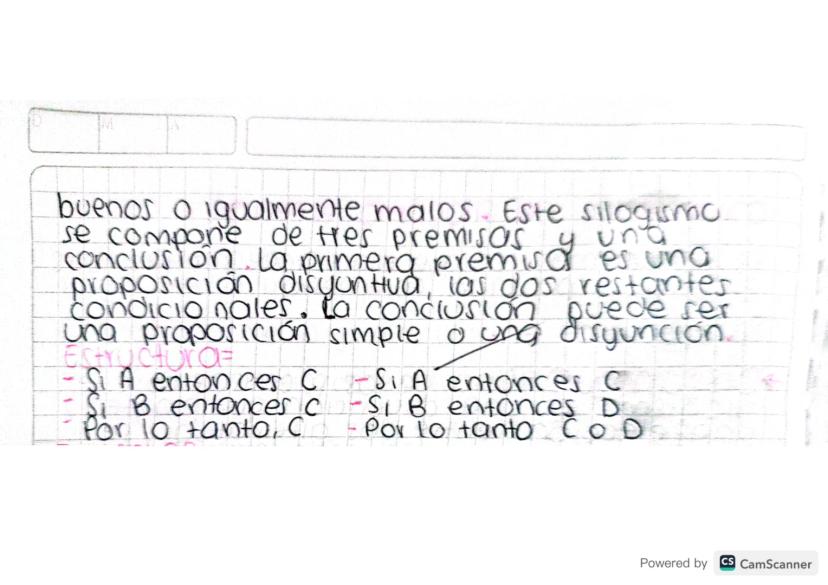 D M A
buenos o igualmente malos. Este silogismo
se compone de tres premisas y una
conclusión. La primera premisa es una
proposición disyuntiva, las dos restantes
condicionales. La conclusión puede ser
una proposición simple o una disyunción.
Estructura=
- Si A entonces C - Si A entonces C
- Si B entonces C - Si B entonces D
- Por lo tanto, C - Por lo tanto C o D
Powered by CS CamScanner